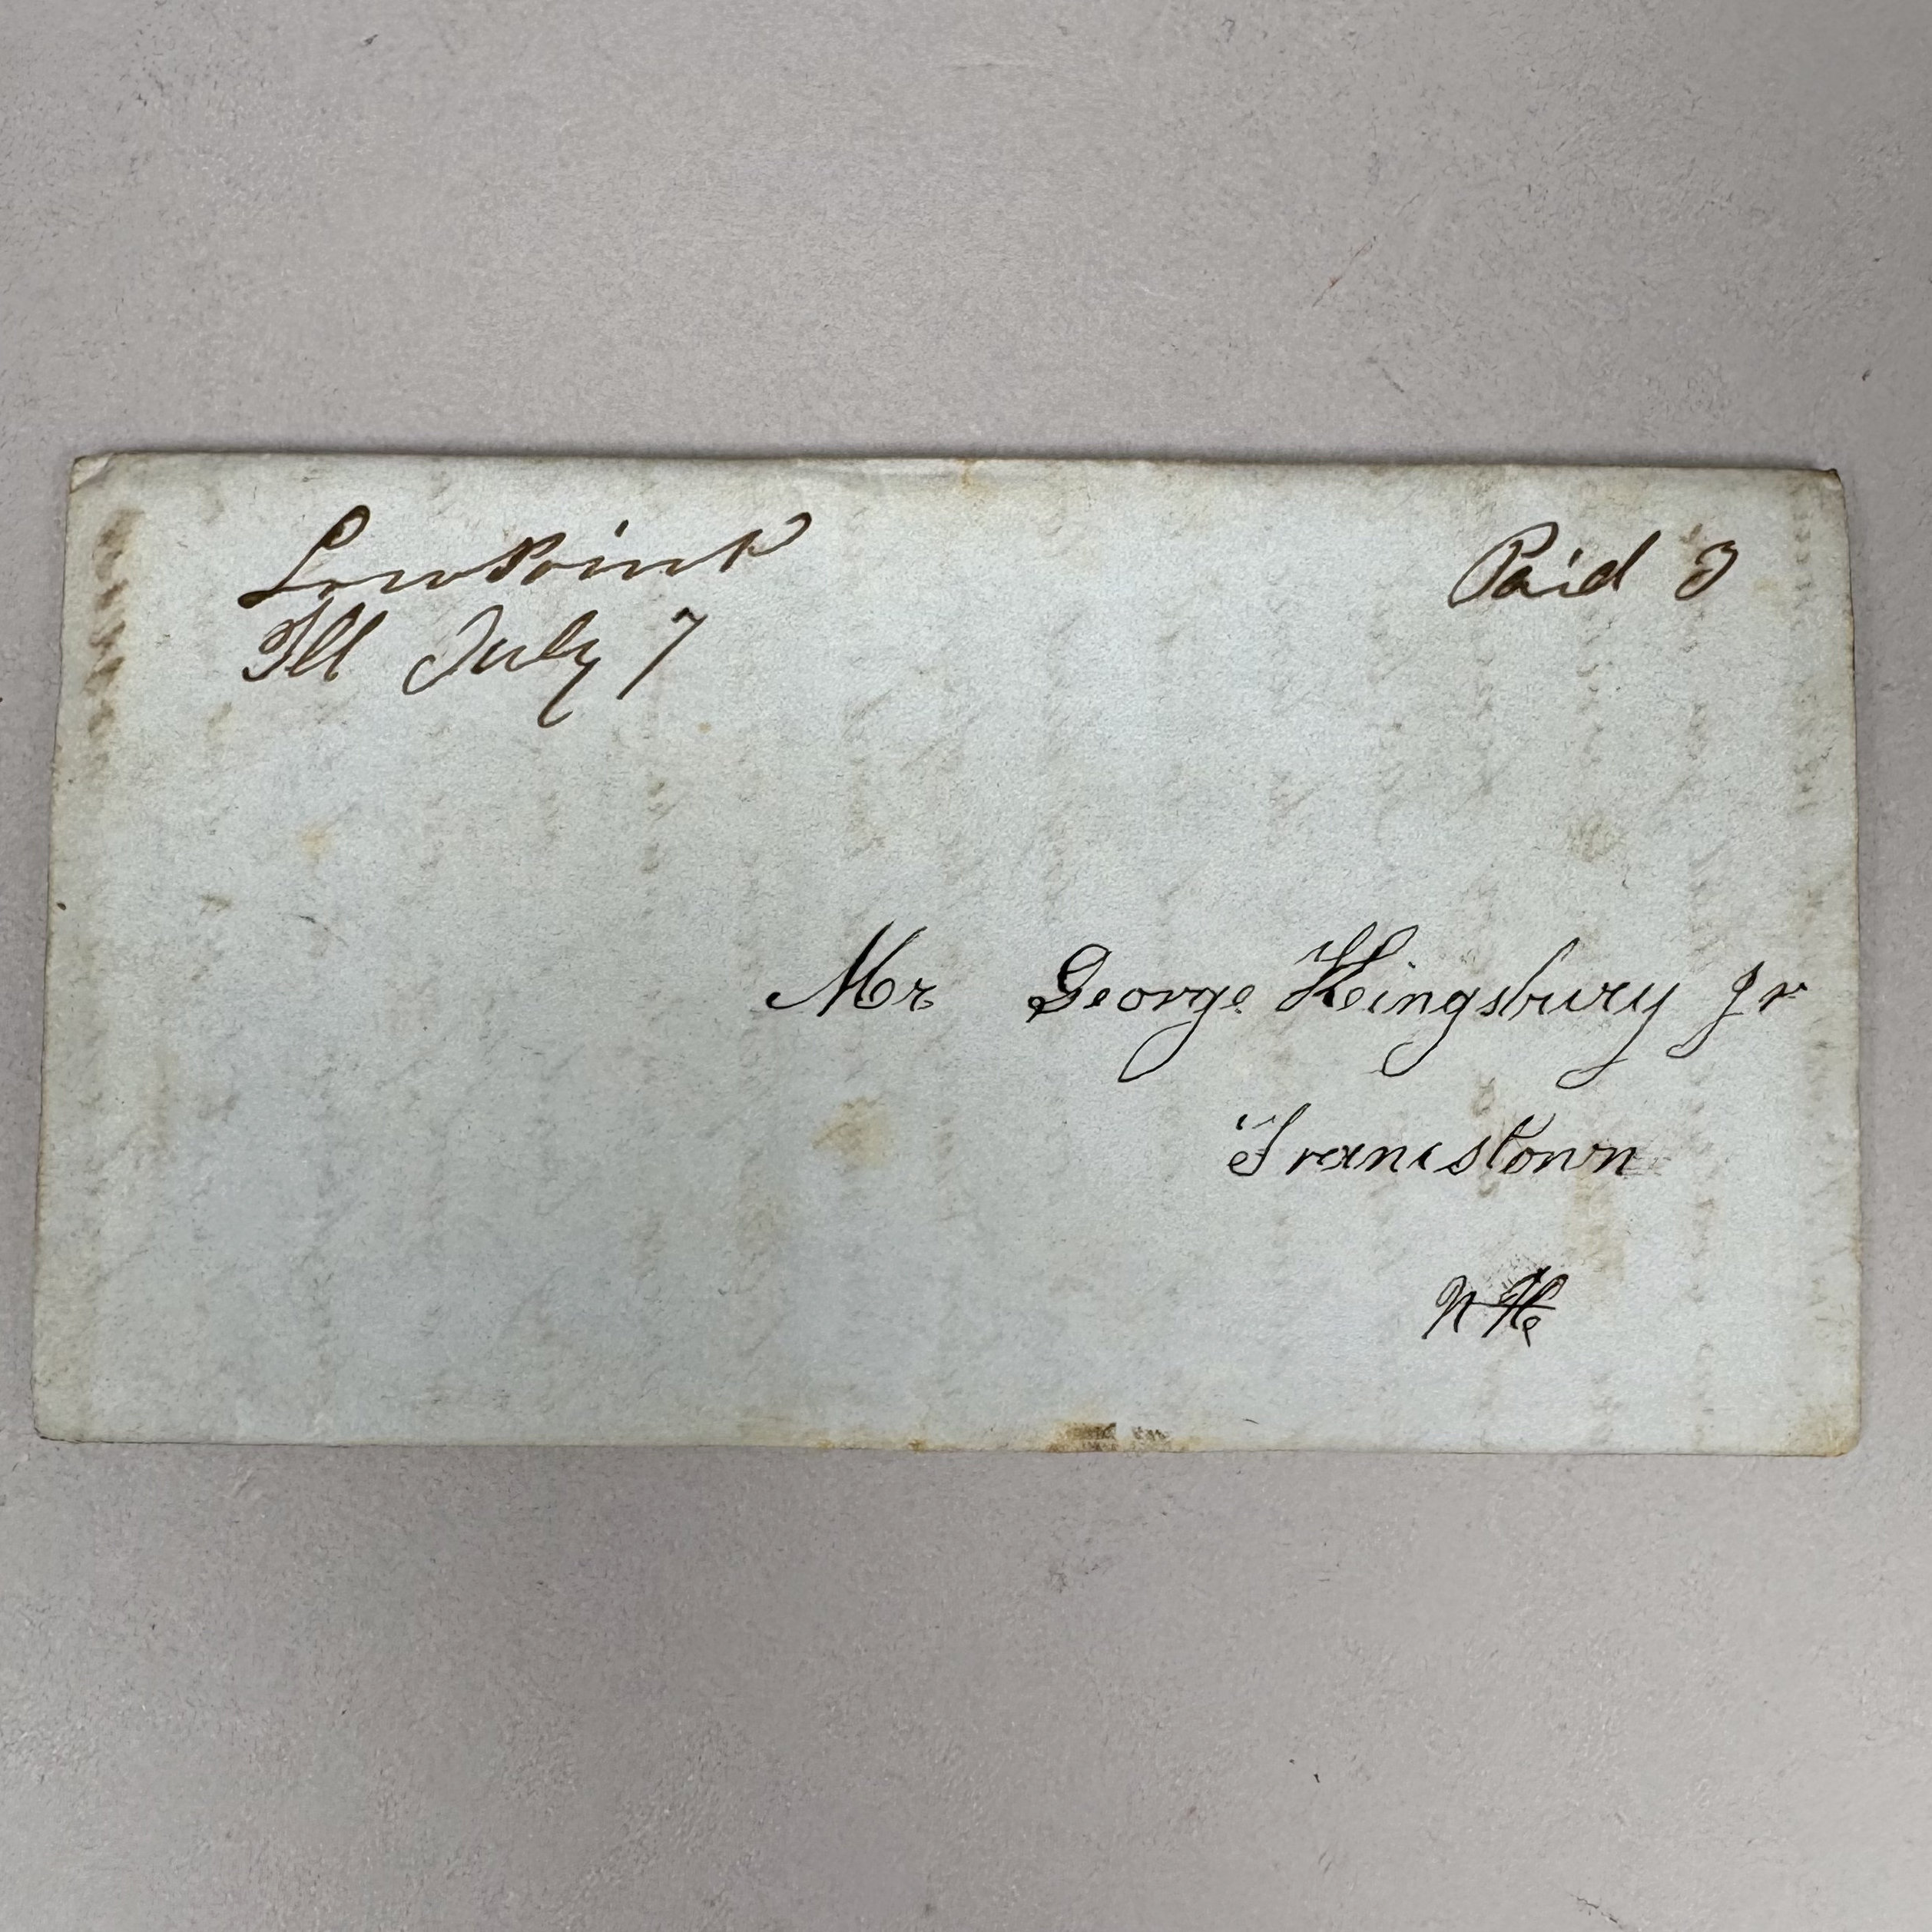 LowPoint
Ill July 7
Paid 3
Mr George Kingsbury Jr
Francistown
N H